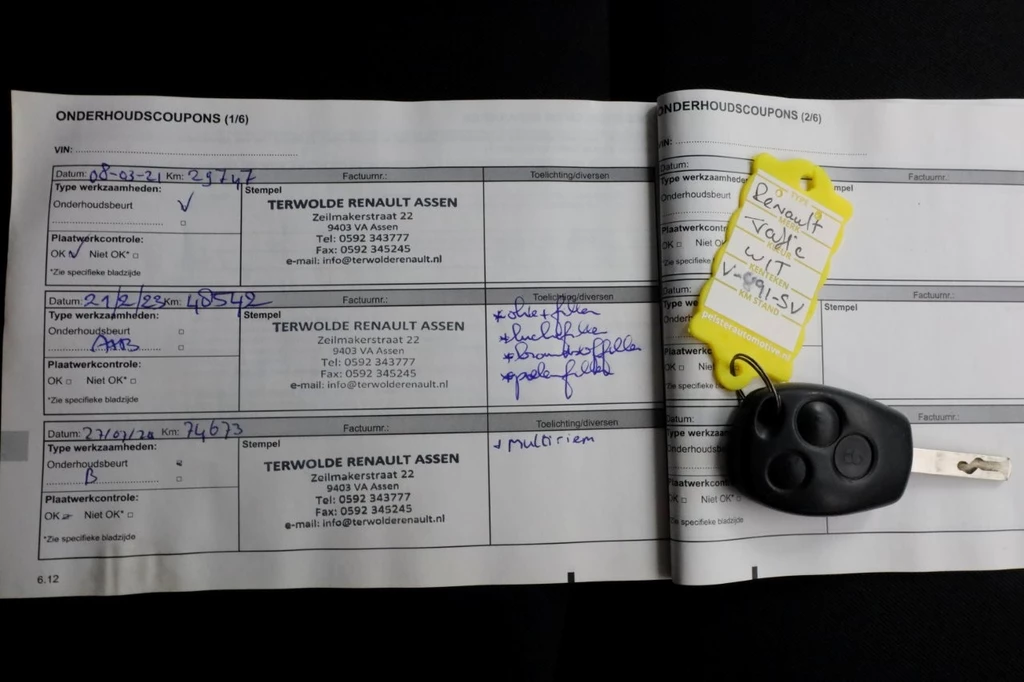 ONDERHOUDSCOUPONS (1/6)
VIN:
Datum: 08-03-21 Km: 29747
Factuurnr.:
Toelichting/diversen
Type werkzaamheden:
Onderhoudsbeurt
Plaatwerkcontrole:
OK Niet OK*
*Zie specifieke bladzijde
Stempel
TERWOLDE RENAULT ASSEN
Zeilmakerstraat 22
9403 VA Assen
Tel: 0592 343777
Fax: 0592 345245
e-mail: info@terwolderenault.nl
Datum: 21/2/23 Km: 48542
Factuurnr.:
Toelichting/diversen
Type werkzaamheden:
Onderhoudsbeurt
Plaatwerkcontrole:
OK Niet OK*
*Zie specifieke bladzijde
Stempel
TERWOLDE RENAULT ASSEN
Zeilmakerstraat 22
9403 VA Assen
Tel: 0592 343777
Fax: 0592 345245
e-mail: info@terwolderenault.nl
*olie + filter
*luchtfilter
*brandstoffilter
*pollenfilter
Datum: Km: 74673
Factuurnr.:
Toelichting/diversen
Type werkzaamheden:
Onderhoudsbeurt
B
Plaatwerkcontrole:
OK Niet OK*
*Zie specifieke bladzijde
Stempel
TERWOLDE RENAULT ASSEN
Zeilmakerstraat 22
9403 VA Assen
Tel: 0592 343777
Fax: 0592 345245
e-mail: info@terwolderenault.nl
+ multiriem
6.12
ONDERHOUDSCOUPONS (2/6)
Datum:
Factuurnr.:
Type werkzaa
Onderhoudsbeu
Plaatwerkcontr
OK Niet
*Zie specifie
Stempel
Factuurnr.:
Plaatwerkc
OK
*Zie specifie
Datum:
Factuurnr.:
Type werkzaa
Onderhoudsb
Plaatwerkcon
OK
*Zie specifieke bladzijde
TYPE
Renault
MERK
Trafic
KLEUR
WIT
KENTEKEN
V-991-SV
KM STAND
pelsterautomotive.nl